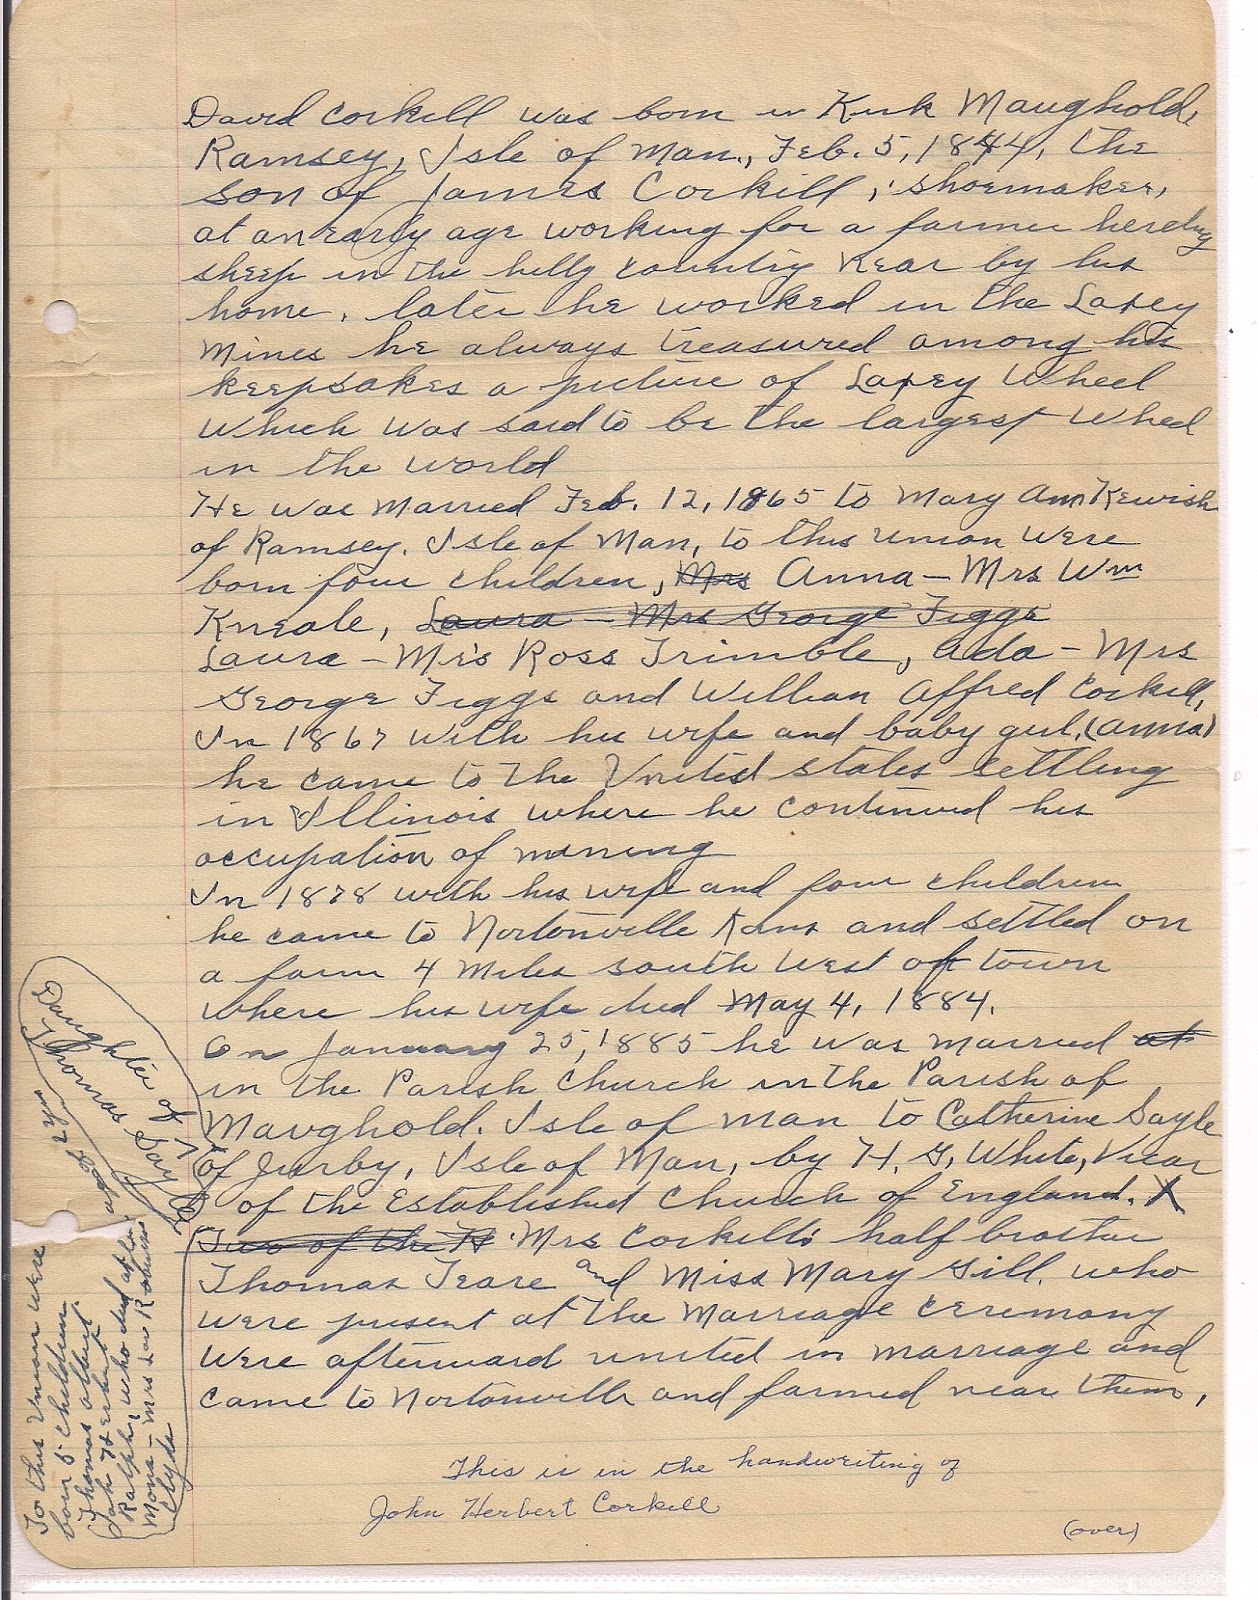 David Corkill was born in Kirk Maughold,
Ramsey, Isle of Man., Feb. 5, 1844, the
son of James Corkill, shoemaker,
at an early age working for a farmer herding
sheep in the hilly country near by his
home. later he worked in the Laxey
Mines he always treasured among his
keepsakes a picture of Laxey Wheel
which was said to be the largest wheel
in the world
He was married Feb. 12, 1865 to Mary Ann Kewish
of Ramsey. Isle of Man, to this union were
born four children, Mrs Anna - Mrs Wm
Kneale, Laura - Mrs George Figgs
Laura - Mrs Ross Trimble, Ada - Mrs
George Figgs and William Alfred Corkill,
In 1867 with his wife and baby girl, (Anna)
he came to the United States settling
in Illinois where he continued his
occupation of mining
In 1878 with his wife and four children
he came to Nortonville Kans and settled on
a farm 4 miles south west of town
where his wife died May 4, 1884.
On January 25, 1885 he was married at
in the Parish Church in the Parish of
Maughold. Isle of Man to Catherine Sayle
of Jurby, Isle of Man, by H. G. White, Vicar
of the Established Church of England. X
(Two of the H Mrs Corkill's half brother
Thomas Teare and Miss Mary Gill. who
were present at the marriage ceremony
were afterward united in marriage and
came to Nortonville and farmed near them,
This is in the handwriting of
John Herbert Corkill
(over)
Daughter of
Thomas Sayle
To this Union were
born 5 children
Thomas Albert
John Herbert
Ralph, who died at the age of 2 yrs
Mona - Mrs Lou Robinson
Clyde